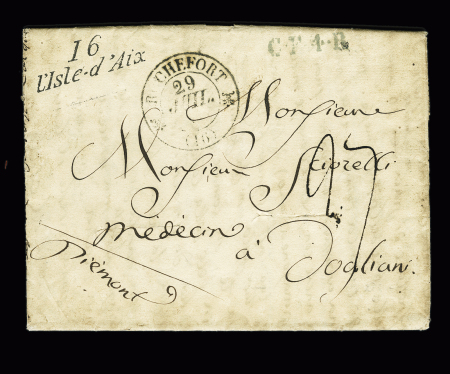 16
l'Isle-d'Aix
C.F.4.R.
ROCHEFORT
29
JUIL.
(16)
Monsieur
Monsieur
Médécin
à Dogliani.
Piémont